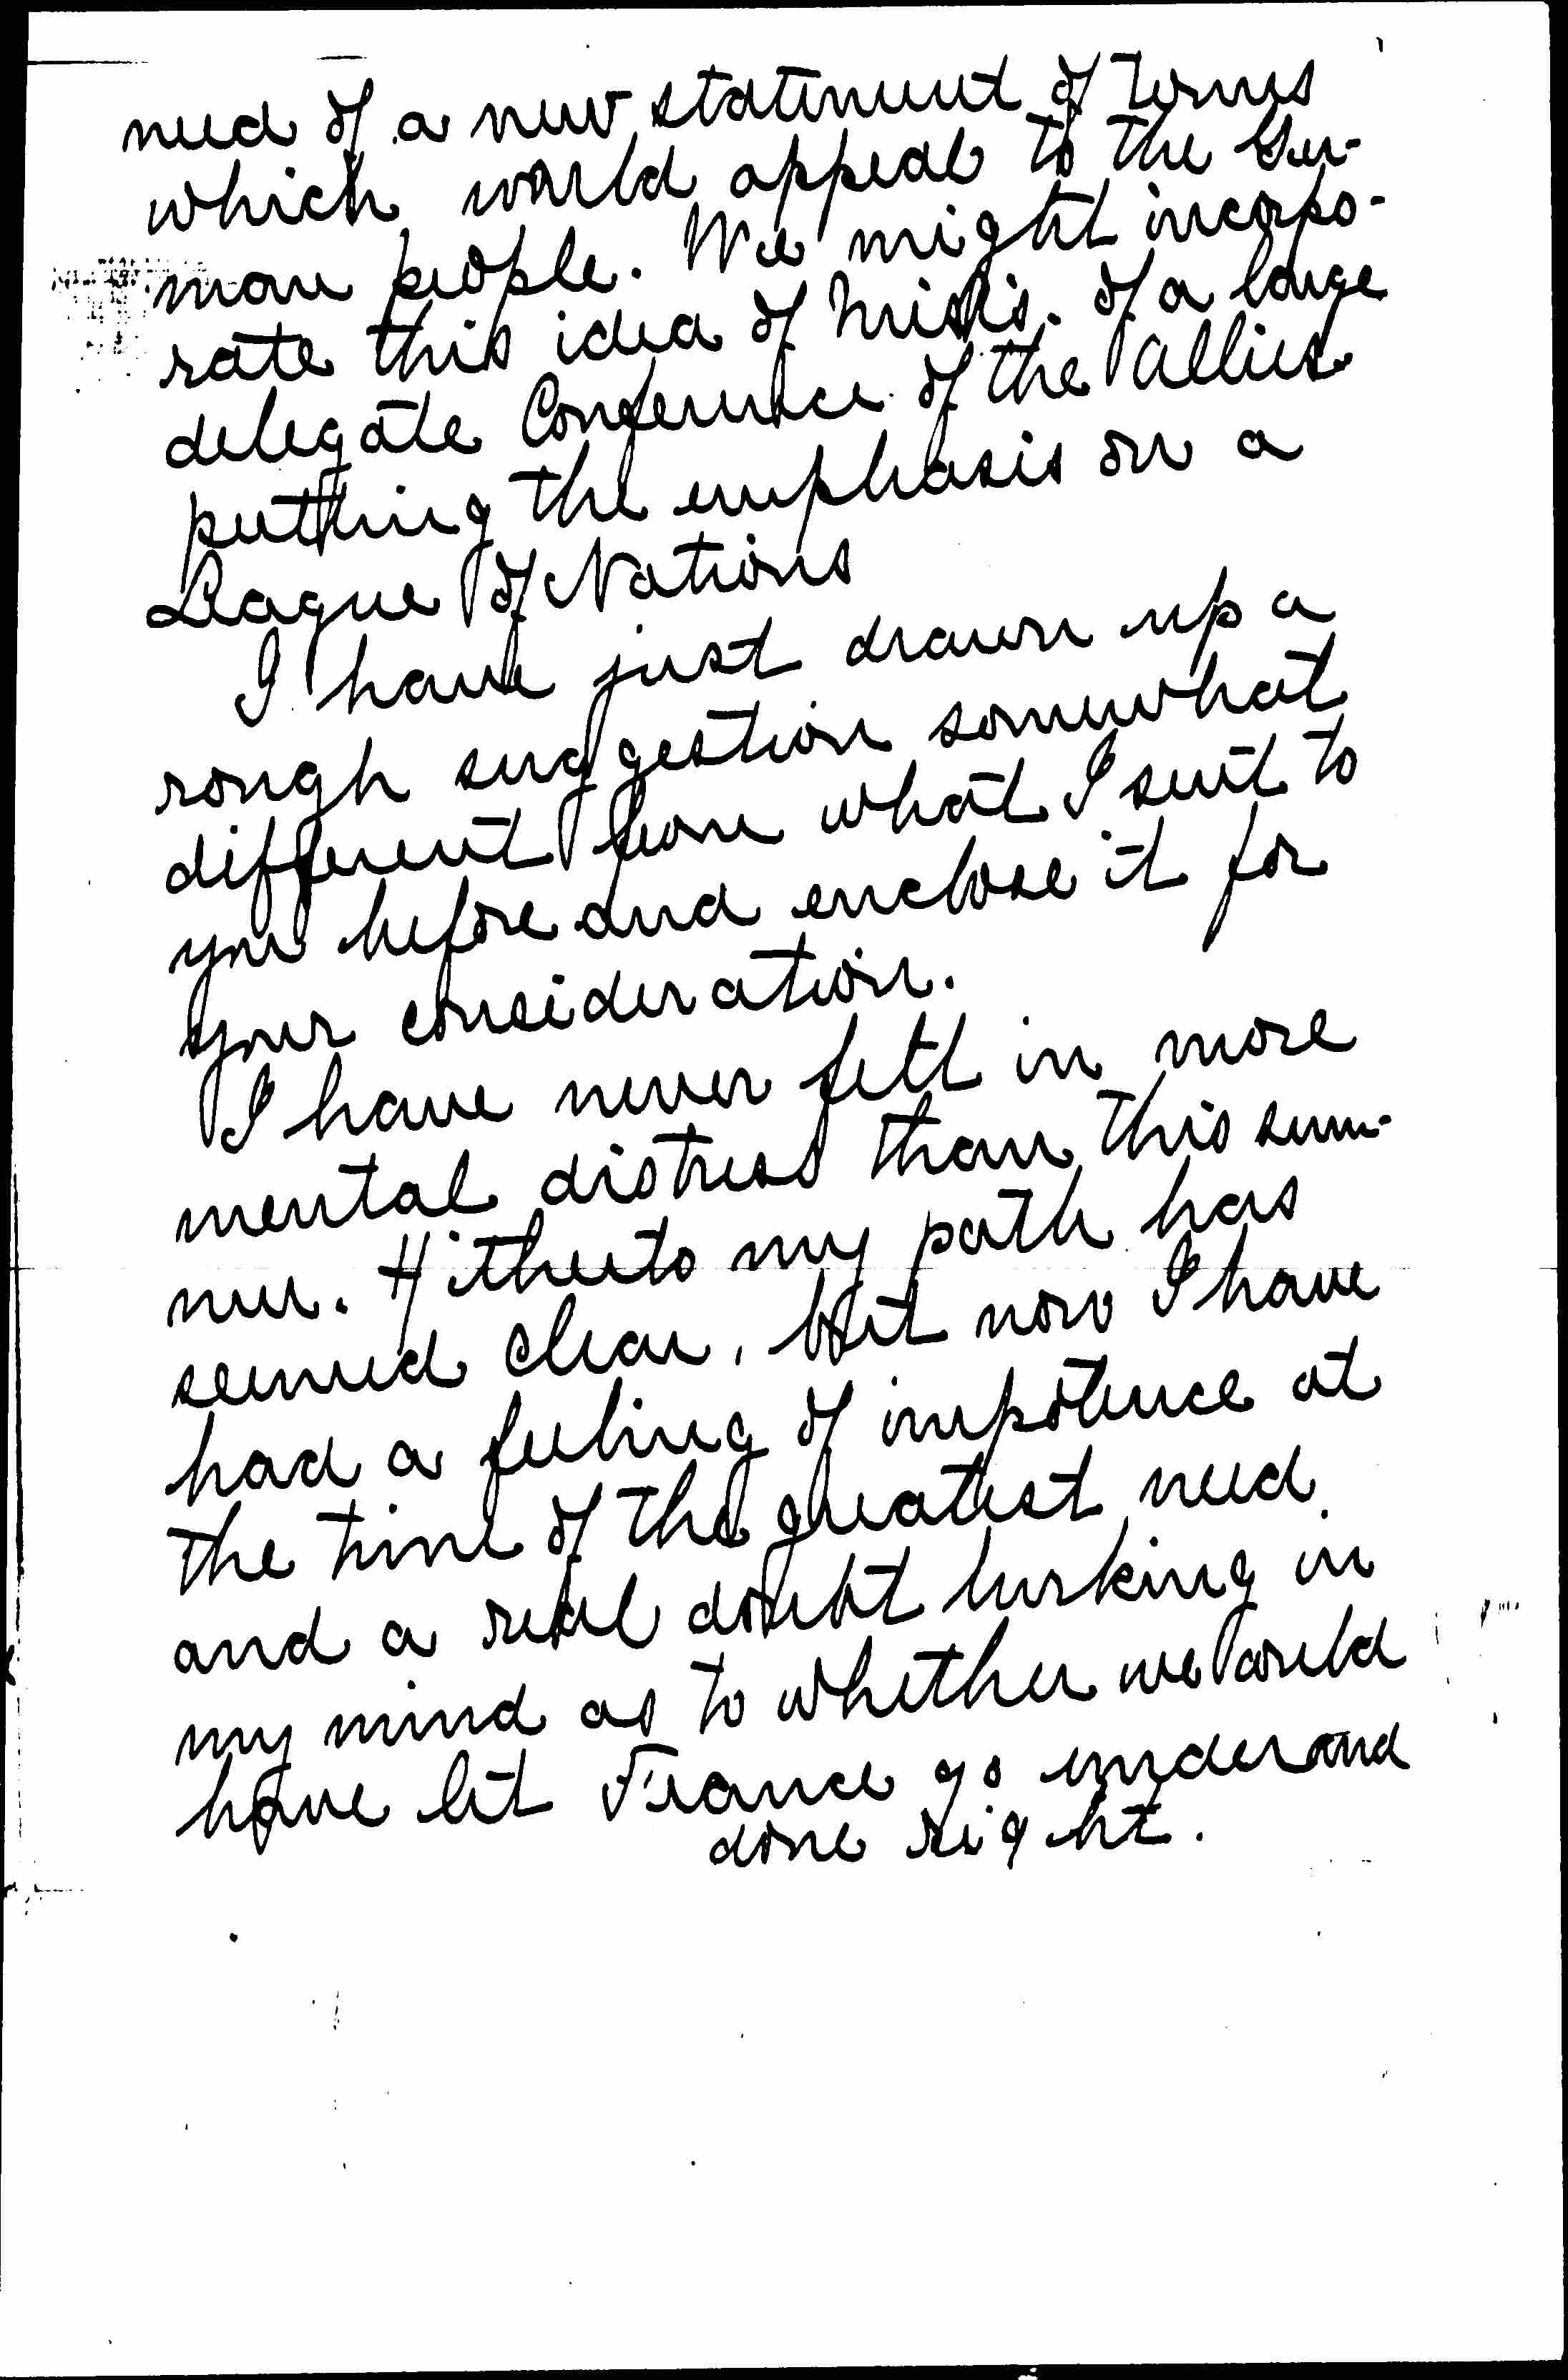 need of a new statement of terms
which would appeal to the Ger-
man people. We might incorpo-
rate this idea of of a large
delegate Conference of the Allies
putting the emphasis on a
League of Nations
I have just drawn up a
rough suggestion somewhat
different from what I sent to
you before and enclose it for
your consideration.
I have never felt in more
mental distress than this sum-
mer. Hitherto my path has
seemed clear, but now I have
had a feeling of impotence at
the time of the greatest need
and a real doubt lurking in
my mind as to whether we could
have let France go under and
done right.